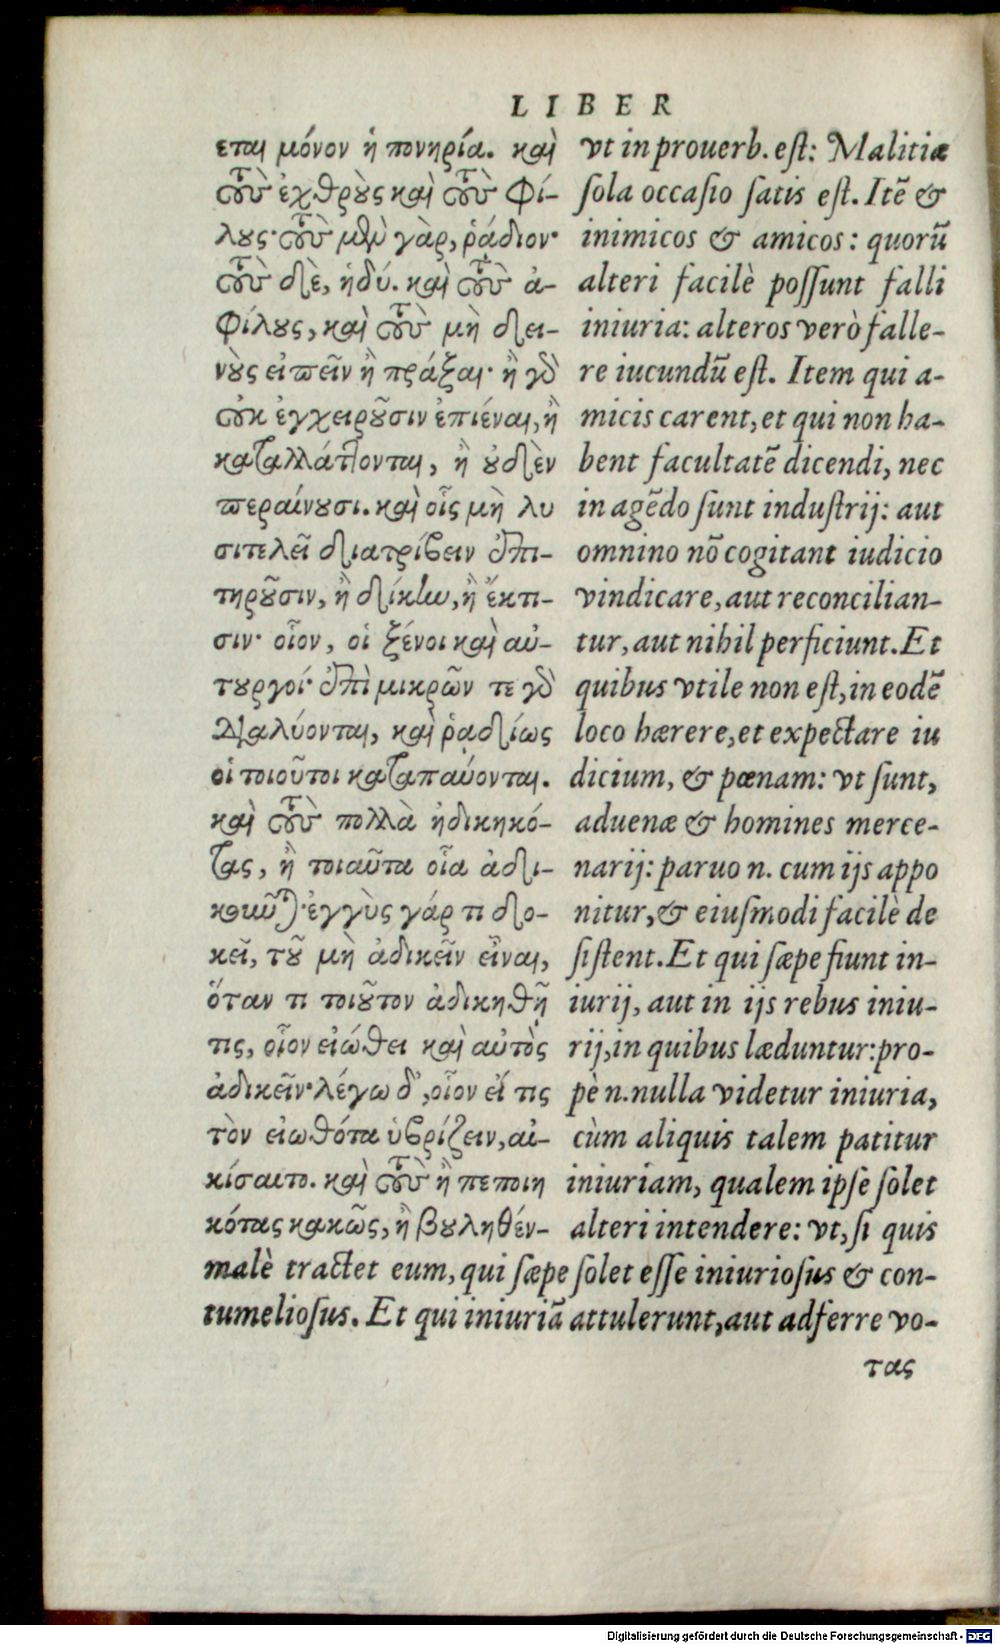 LIBER
εται μόνον ἡ πονηρία. καὶ
τοὺς ἐχθροὺς καὶ τοὺς φί-
λους· τοὺς μὲν γὰρ, ῥάδιον·
τοὺς δὲ, ἡδύ. καὶ τοὺς ἀ-
φίλους, καὶ τοὺς μὴ δει-
νοὺς εἰπεῖν ἢ πράξαι· ἢ γὰρ
οὐκ ἐγχειροῦσιν ἐπιέναι, ἢ
καταλλάττονται, ἢ οὐδὲν
περαίνουσι. καὶ οἷς μὴ λυ
σιτελεῖ διατρίβειν ἐπι-
τηροῦσιν, ἢ δίκην, ἢ ἔκτι-
σιν· οἷον, οἱ ξένοι καὶ αὐ-
τουργοί· ἐπὶ μικρῶν τε γὰρ
διαλύονται, καὶ ῥαδίως
οἱ τοιοῦτοι καταπαύονται.
καὶ τοὺς πολλὰ ἠδικηκό-
τας, ἢ τοιαῦτα οἷα ἀδι-
κοῦνται· ἐγγὺς γάρ τι δο-
κεῖ, τοῦ μὴ ἀδικεῖν εἶναι,
ὅταν τι τοιοῦτον ἀδικηθῇ
τις, οἷον εἰώθει καὶ αὐτὸς
ἀδικεῖν· λέγω δ', οἷον εἴ τις
τὸν εἰωθότα ὑβρίζειν, αἰ-
κίσαιτο. καὶ τοὺς ἢ πεποιη
κότας κακῶς, ἢ βουληθέν-
vt in prouerb. est: Malitiæ
sola occasio satis est. Itē &
inimicos & amicos: quorū
alteri facilè possunt falli
iniuria: alteros verò falle-
re iucundū est. Item qui a-
micis carent, et qui non ha-
bent facultatē dicendi, nec
in agēdo sunt industrij: aut
omnino nō cogitant iudicio
vindicare, aut reconcilian-
tur, aut nihil perficiunt. Et
quibus vtile non est, in eodē
loco hærere, et expectare iu
dicium, & pœnam: vt sunt,
aduenæ & homines merce-
narij: paruo n. cum ijs appo
nitur, & eiusmodi facilè de
sistent. Et qui sæpe fiunt in-
iurij, aut in ijs rebus iniu-
rij, in quibus læduntur: pro-
pè n. nulla videtur iniuria,
cùm aliquis talem patitur
iniuriam, qualem ipse solet
alteri intendere: vt, si quis
malè tractet eum, qui sæpe solet esse iniuriosus & con-
tumeliosus. Et qui iniuriā attulerunt, aut adferre vo-
τας
Digitalisierung gefördert durch die Deutsche Forschungsgemeinschaft - DFG